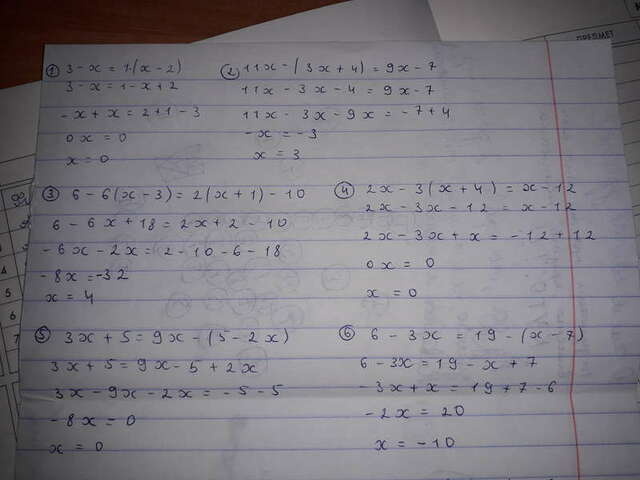 ПРЕДМЕТ
① 3 - x = 1·(x - 2)
3 - x = 1 - x + 2
- x + x = 2 + 1 - 3
0x = 0
x = 0
② 11x - (3x + 4) = 9x - 7
11x - 3x - 4 = 9x - 7
11x - 3x - 9x = -7 + 4
- x = -3
x = 3
③ 6 - 6(x - 3) = 2(x + 1) - 10
6 - 6x + 18 = 2x + 2 - 10
- 6x - 2x = 2 - 10 - 6 - 18
- 8x = -32
x = 4
④ 2x - 3(x + 4) = x - 12
2x - 3x - 12 = x - 12
2x - 3x + x = -12 + 12
0x = 0
x = 0
⑤ 3x + 5 = 9x - (5 - 2x)
3x + 5 = 9x - 5 + 2x
3x - 9x - 2x = -5 - 5
- 8x = 0
x = 0
⑥ 6 - 3x = 19 - (x - 7)
6 - 3x = 19 - x + 7
- 3x + x = 19 + 7 - 6
- 2x = 20
x = -10
4
5
6
7